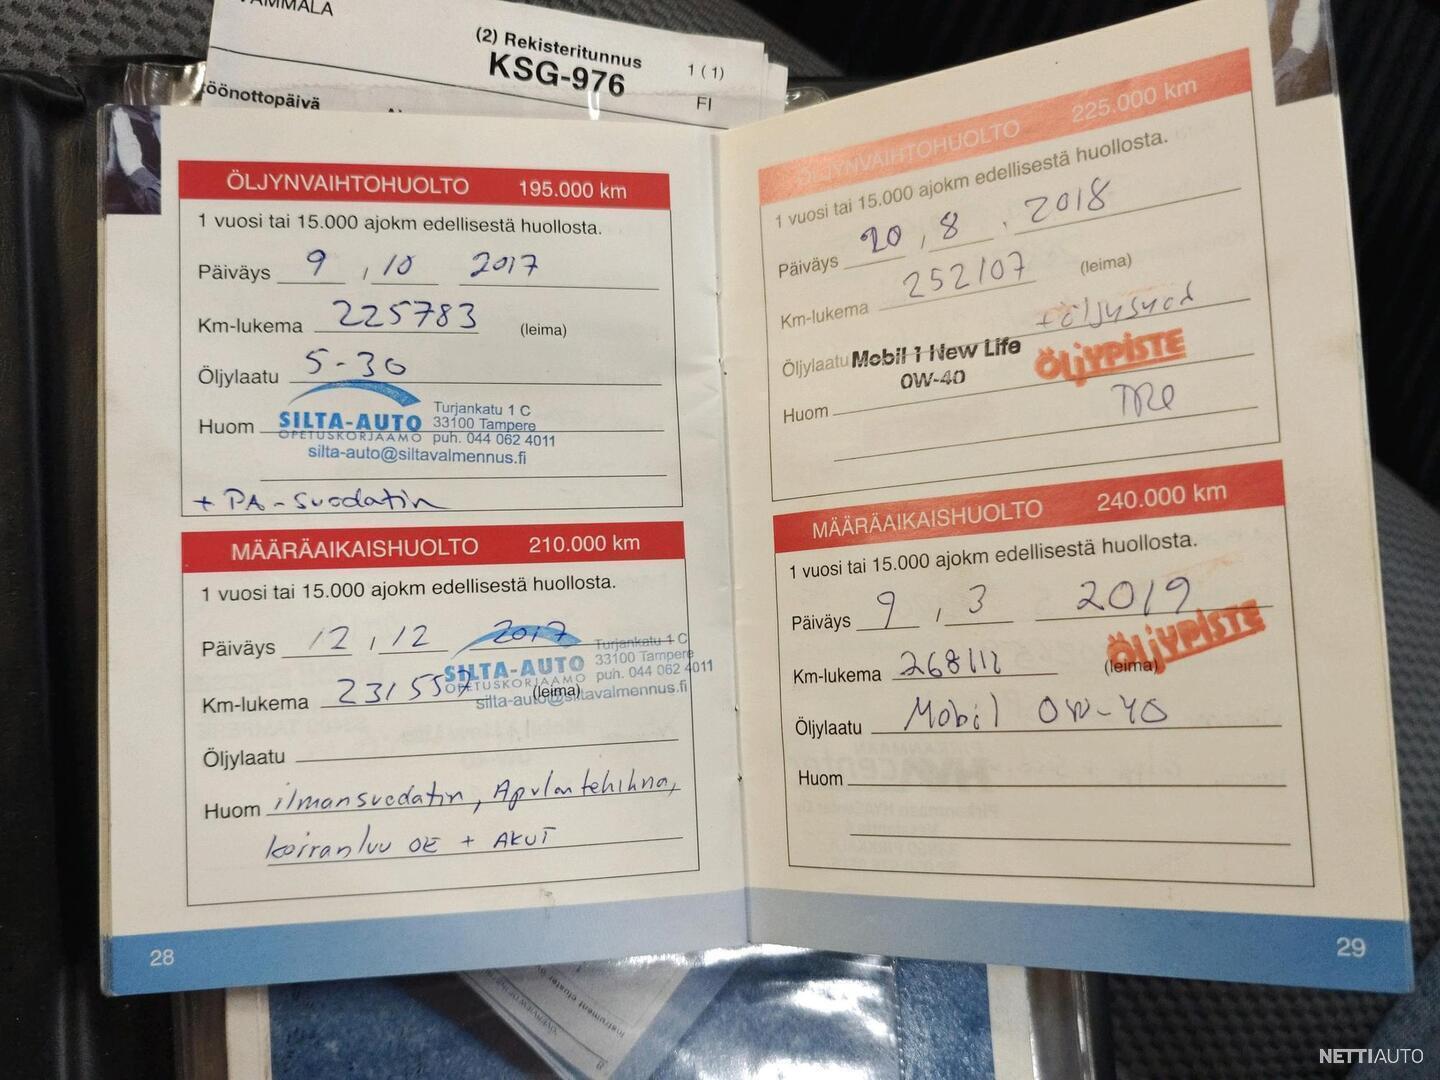 VAMMALA
(2) Rekisteritunnus
KSG-976
1 (1)
FI
ÖLJYNVAIHTOHUOLTO 195.000 km
1 vuosi tai 15.000 ajokm edellisestä huollosta.
Päiväys 9 , 10 2017
Km-lukema 225783 (leima)
Öljylaatu 5-30
Huom
SILTA-AUTO
OPETUSKORJAAMO
Turjankatu 1 C
33100 Tampere
puh. 044 062 4011
silta-auto@siltavalmennus.fi
+ PA-suodatin
MÄÄRÄAIKAISHUOLTO 210.000 km
1 vuosi tai 15.000 ajokm edellisestä huollosta.
Päiväys 12 , 12 2017
Km-lukema 231557 (leima)
SILTA-AUTO
OPETUSKORJAAMO
Turjankatu 1 C
33100 Tampere
puh. 044 062 4011
silta-auto@siltavalmennus.fi
Öljylaatu
Huom ilmansuodatin, Apulaitehihna,
koiranluu OE + AKUT
28
ÖLJYNVAIHTOHUOLTO 225.000 km
1 vuosi tai 15.000 ajokm edellisestä huollosta.
Päiväys 20 , 8 . 2018
Km-lukema 252107 (leima)
+ öljysuod
Öljylaatu Mobil 1 New Life
0W-40
ÖLJYPISTE
Huom TRE
MÄÄRÄAIKAISHUOLTO 240.000 km
1 vuosi tai 15.000 ajokm edellisestä huollosta.
Päiväys 9 , 3 2019
ÖLJYPISTE
Km-lukema 268112 (leima)
Öljylaatu Mobil 0W-40
Huom
29
NETTIAUTO